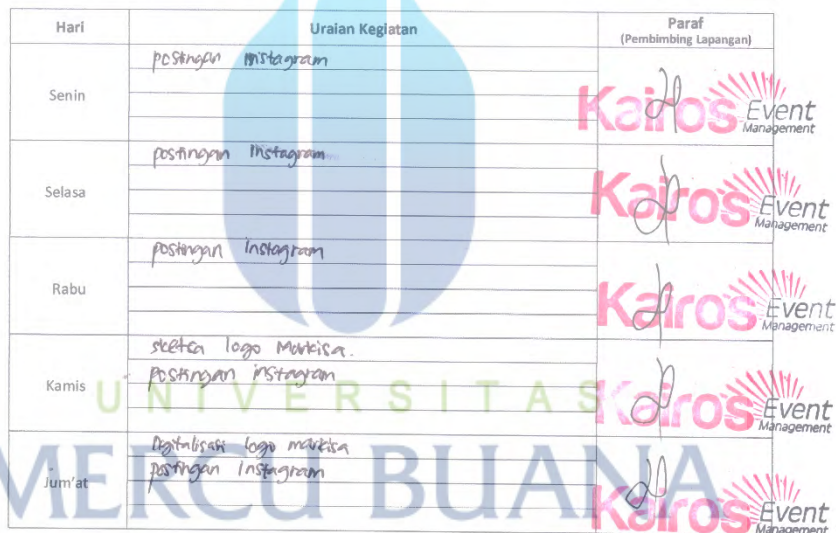 Hari Uraian Kegiatan Paraf
(Pembimbing Lapangan)
Senin
postingan instagram
Kairos Event
Management
Selasa
postingan instagram
Kairos Event
Management
Rabu
postingan instagram
Kairos Event
Management
Kamis
sketsa logo Markisa.
postingan instagram
Kairos Event
Management
UNIVERSITAS
Jum'at
Digitalisasi logo markisa
postingan instagram
Kairos Event
Management
MERCU BUANA